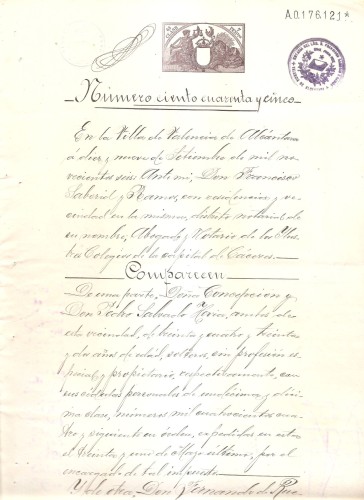 A.0.176.121*
Número ciento cuarenta y cinco
En la Villa de Valencia de Alcántara
á diez y nueve de Setiembre de mil no-
vecientos seis: Ante mi, Don Francisco
y Ramos, con residencia y ve-
cindad en la misma, distrito notarial de
su nombre, Abogado y Notario de los Ilus-
tres Colegios de la capital de Cáceres.
Comparecen
De una parte, Doña Concepcion y
Don Pedro Salgado, ambos de
esta vecindad, de treinta y cuatro y treinta
y dos años de edad, solteros, sin profesion es-
pecial y propietario, respectivamente, con
sus cédulas personales de undécima y déci-
ma clase, números mil cuatrocientos cua-
tro y siguiente en órden, expedidas en esta
el treinta y uno de Mayo último, por el
encargado de tal impuesto.
Y de otra, Don Fernando